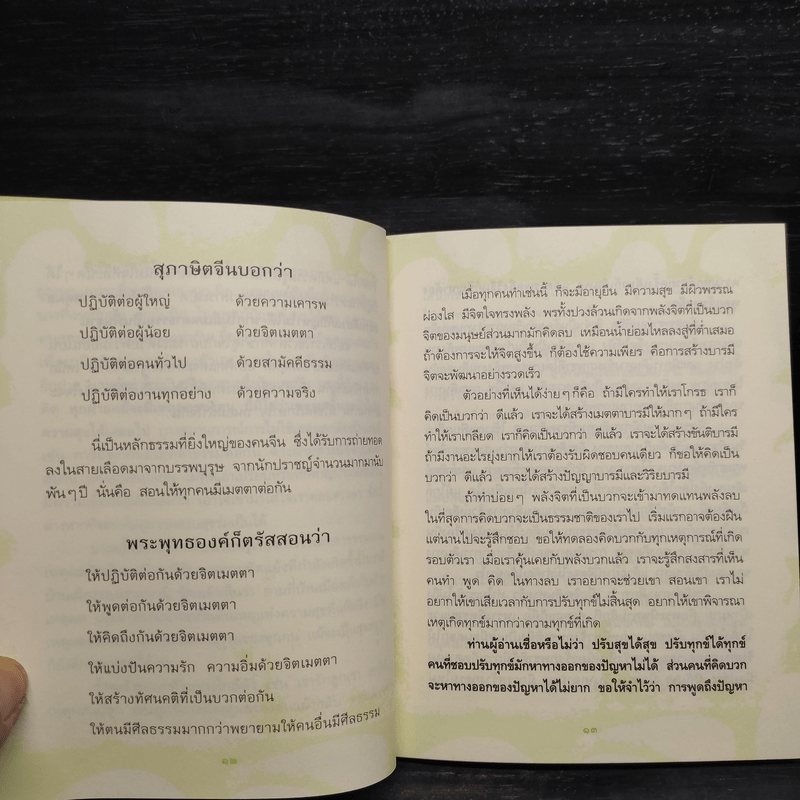 สุภาษิตจีนบอกว่า
ปฏิบัติต่อผู้ใหญ่ ด้วยความเคารพ
ปฏิบัติต่อผู้น้อย ด้วยจิตเมตตา
ปฏิบัติต่อคนทั่วไป ด้วยสามัคคีธรรม
ปฏิบัติต่องานทุกอย่าง ด้วยความจริง
นี่เป็นหลักธรรมที่ยิ่งใหญ่ของคนจีน ซึ่งได้รับการถ่ายทอด
ลงในสายเลือดมาจากบรรพบุรุษ จากนักปราชญ์จำนวนมากมานับ
พันๆ ปี นั่นคือ สอนให้ทุกคนมีเมตตาต่อกัน
พระพุทธองค์ก็ตรัสสอนว่า
ให้ปฏิบัติต่อกันด้วยจิตเมตตา
ให้พูดต่อกันด้วยจิตเมตตา
ให้คิดถึงกันด้วยจิตเมตตา
ให้แบ่งปันความรัก ความอิ่มด้วยจิตเมตตา
ให้สร้างทัศนคติที่เป็นบวกต่อกัน
ให้ตนมีศีลธรรมมากกว่าพยายามให้คนอื่นมีศีลธรรม
๑๒
เมื่อทุกคนทำเช่นนี้ ก็จะมีอายุยืน มีความสุข มีผิวพรรณ
ผ่องใส มีจิตใจทรงพลัง พรทั้งปวงล้วนเกิดจากพลังจิตที่เป็นบวก
จิตของมนุษย์ส่วนมากมักคิดลบ เหมือนน้ำย่อมไหลลงสู่ที่ต่ำเสมอ
ถ้าต้องการจะให้จิตสูงขึ้น ก็ต้องใช้ความเพียร คือการสร้างบารมี
จิตจะพัฒนาอย่างรวดเร็ว
ตัวอย่างที่เห็นได้ง่ายๆ ก็คือ ถ้ามีใครทำให้เราโกรธ เราก็
คิดเป็นบวกว่า ดีแล้ว เราจะได้สร้างเมตตาบารมีให้มากๆ ถ้ามีใคร
ทำให้เราเกลียด เราก็คิดเป็นบวกว่า ดีแล้ว เราจะได้สร้างขันติบารมี
ถ้ามีงานอะไรยุ่งยากให้เราต้องรับผิดชอบคนเดียว ก็ขอให้คิดเป็น
บวกว่า ดีแล้ว เราจะได้สร้างปัญญาบารมีและวิริยบารมี
ถ้าทำบ่อยๆ พลังจิตที่เป็นบวกจะเข้ามาทดแทนพลังลบ
ในที่สุดการคิดบวกจะเป็นธรรมชาติของเราไป เริ่มแรกอาจต้องฝืน
แต่นานไปจะรู้สึกชอบ ขอให้ทดลองคิดบวกกับทุกเหตุการณ์ที่เกิด
รอบตัวเรา เมื่อเราคุ้นเคยกับพลังบวกแล้ว เราจะรู้สึกสงสารที่เห็น
คนทำ พูด คิด ในทางลบ เราอยากจะช่วยเขา สอนเขา เราไม่
อยากให้เขาเสียเวลากับการปรับทุกข์ไม่สิ้นสุด อยากให้เขาพิจารณา
เหตุเกิดทุกข์มากกว่าความทุกข์ที่เกิด
ท่านผู้อ่านเชื่อหรือไม่ว่า ปรับสุขได้สุข ปรับทุกข์ได้ทุกข์
คนที่ชอบปรับทุกข์มักหาทางออกของปัญหาไม่ได้ ส่วนคนที่คิดบวก
จะหาทางออกของปัญหาได้ไม่ยาก ขอให้จำไว้ว่า การพูดถึงปัญหา
๑๓